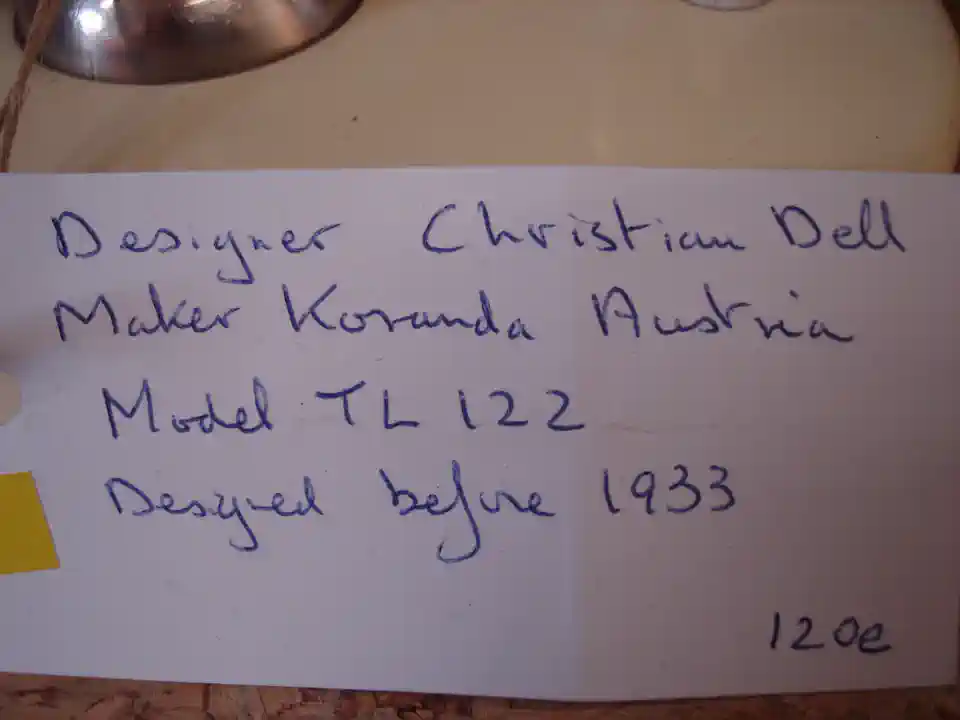 Designer Christian Dell
Maker Koranda Austria
Model TL 122
Desgned before 1933
120e